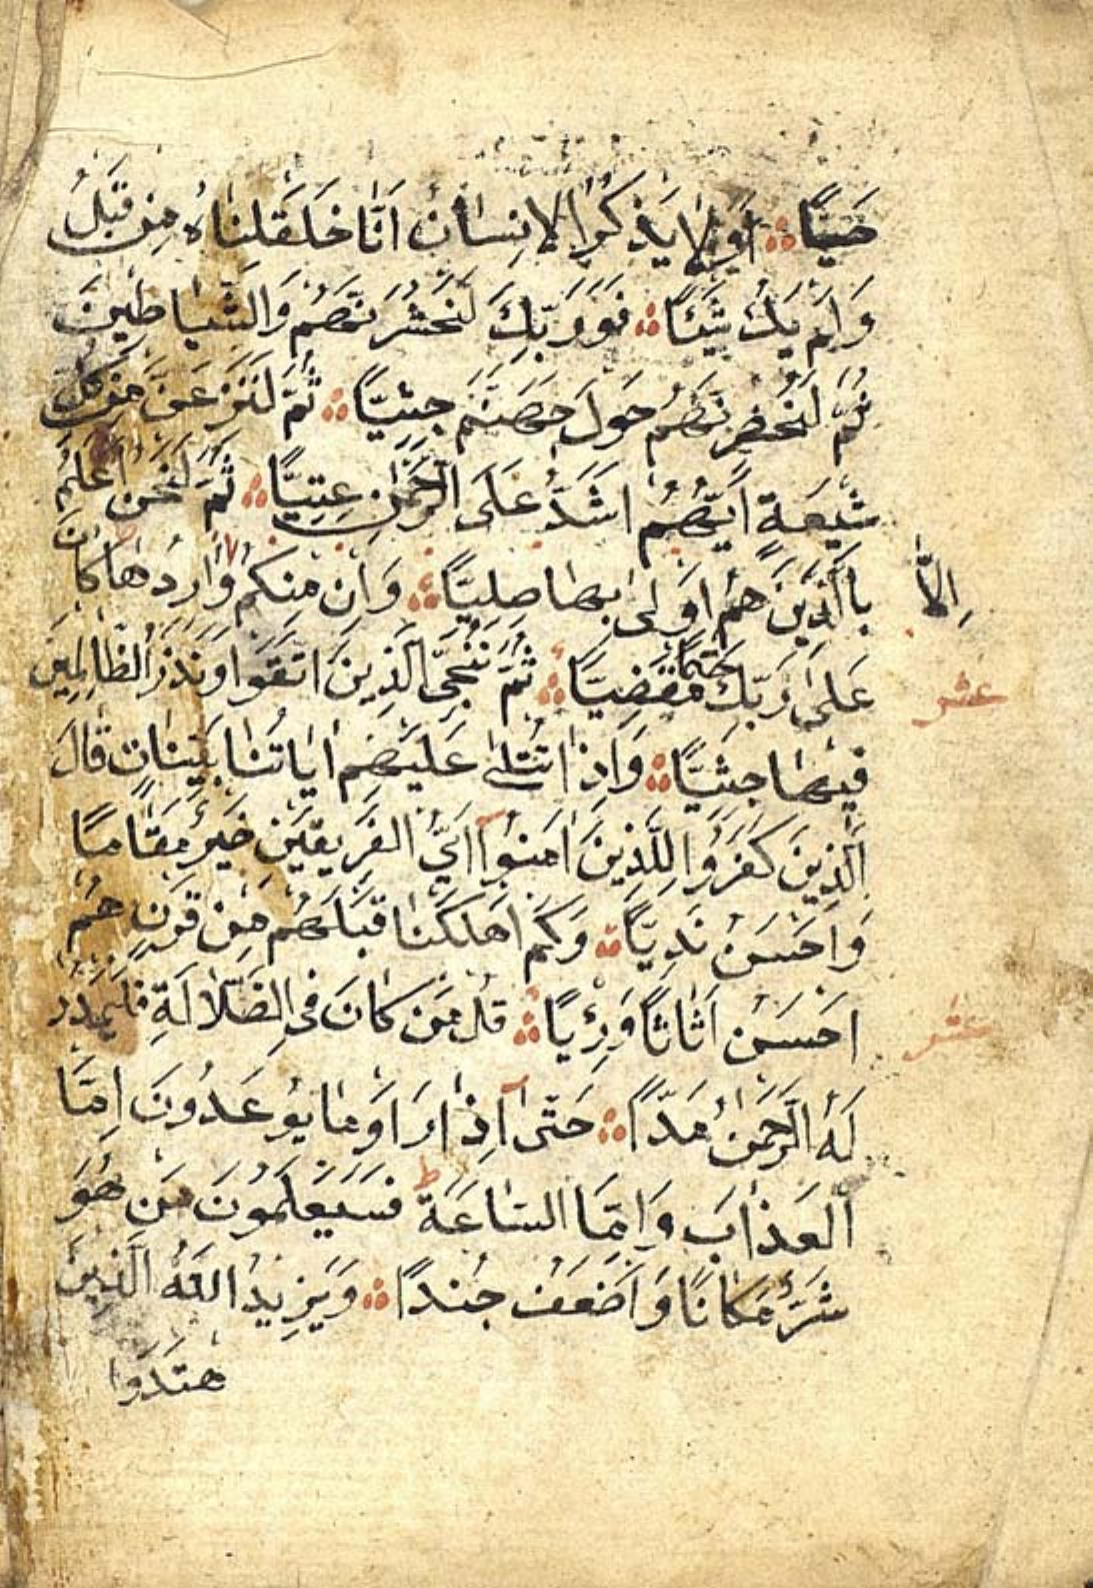 حَيًّا ۞ اَوَلَا يَذْكُرُ الْاِنْسَانُ اَنَّا خَلَقْنَاهُ مِنْ قَبْلُ
وَلَمْ يَكُ شَيْئًا ۞ فَوَرَبِّكَ لَنَحْشُرَنَّهُمْ وَالشَّيَاطِينَ
ثُمَّ لَنُحْضِرَنَّهُمْ حَوْلَ جَهَنَّمَ جِثِيًّا ۞ ثُمَّ لَنَنْزِعَنَّ مِنْ كُلِّ
شِيعَةٍ اَيُّهُمْ اَشَدُّ عَلَى الرَّحْمٰنِ عِتِيًّا ۞ ثُمَّ لَنَحْنُ اَعْلَمُ
بِاالَّذِينَ هُمْ اَوْلٰى بِهَا صِلِيًّا ۞ وَاِنْ مِنْكُمْ وَارِدُهَا كَانَ
اِلَّا
عَلٰى رَبِّكَ حَتْمًا مَقْضِيًّا ۞ ثُمَّ نُنَجِّى الَّذِينَ اتَّقَوْا وَنَذَرُ الظَّالِمِينَ
عشر
فِيهَا جِثِيًّا ۞ وَاِذَا تُتْلٰى عَلَيْهِمْ اٰيَاتُنَا بَيِّنَاتٍ قَالَ
الَّذِينَ كَفَرُوا لِلَّذِينَ اٰمَنُوا اَيُّ الْفَرِيقَيْنِ خَيْرٌ مَقَامًا
وَاَحْسَنُ نَدِيًّا ۞ وَكَمْ اَهْلَكْنَا قَبْلَهُمْ مِنْ قَرْنٍ هُمْ
اَحْسَنُ اَثَاثًا وَرِءْيًا ۞ قُلْ مَنْ كَانَ فِى الضَّلَالَةِ فَلْيَمْدُدْ
عشر
لَهُ الرَّحْمٰنُ مَدًّا ۞ حَتّٰى اِذَا رَاَوْا مَا يُوعَدُونَ اِمَّا
الْعَذَابَ وَاِمَّا السَّاعَةَ ط فَسَيَعْلَمُونَ مَنْ هُوَ
شَرٌّ مَكَانًا وَاَضْعَفُ جُنْدًا ۞ وَيَزِيدُ اللّٰهُ الَّذِينَ
هتَدَوْا